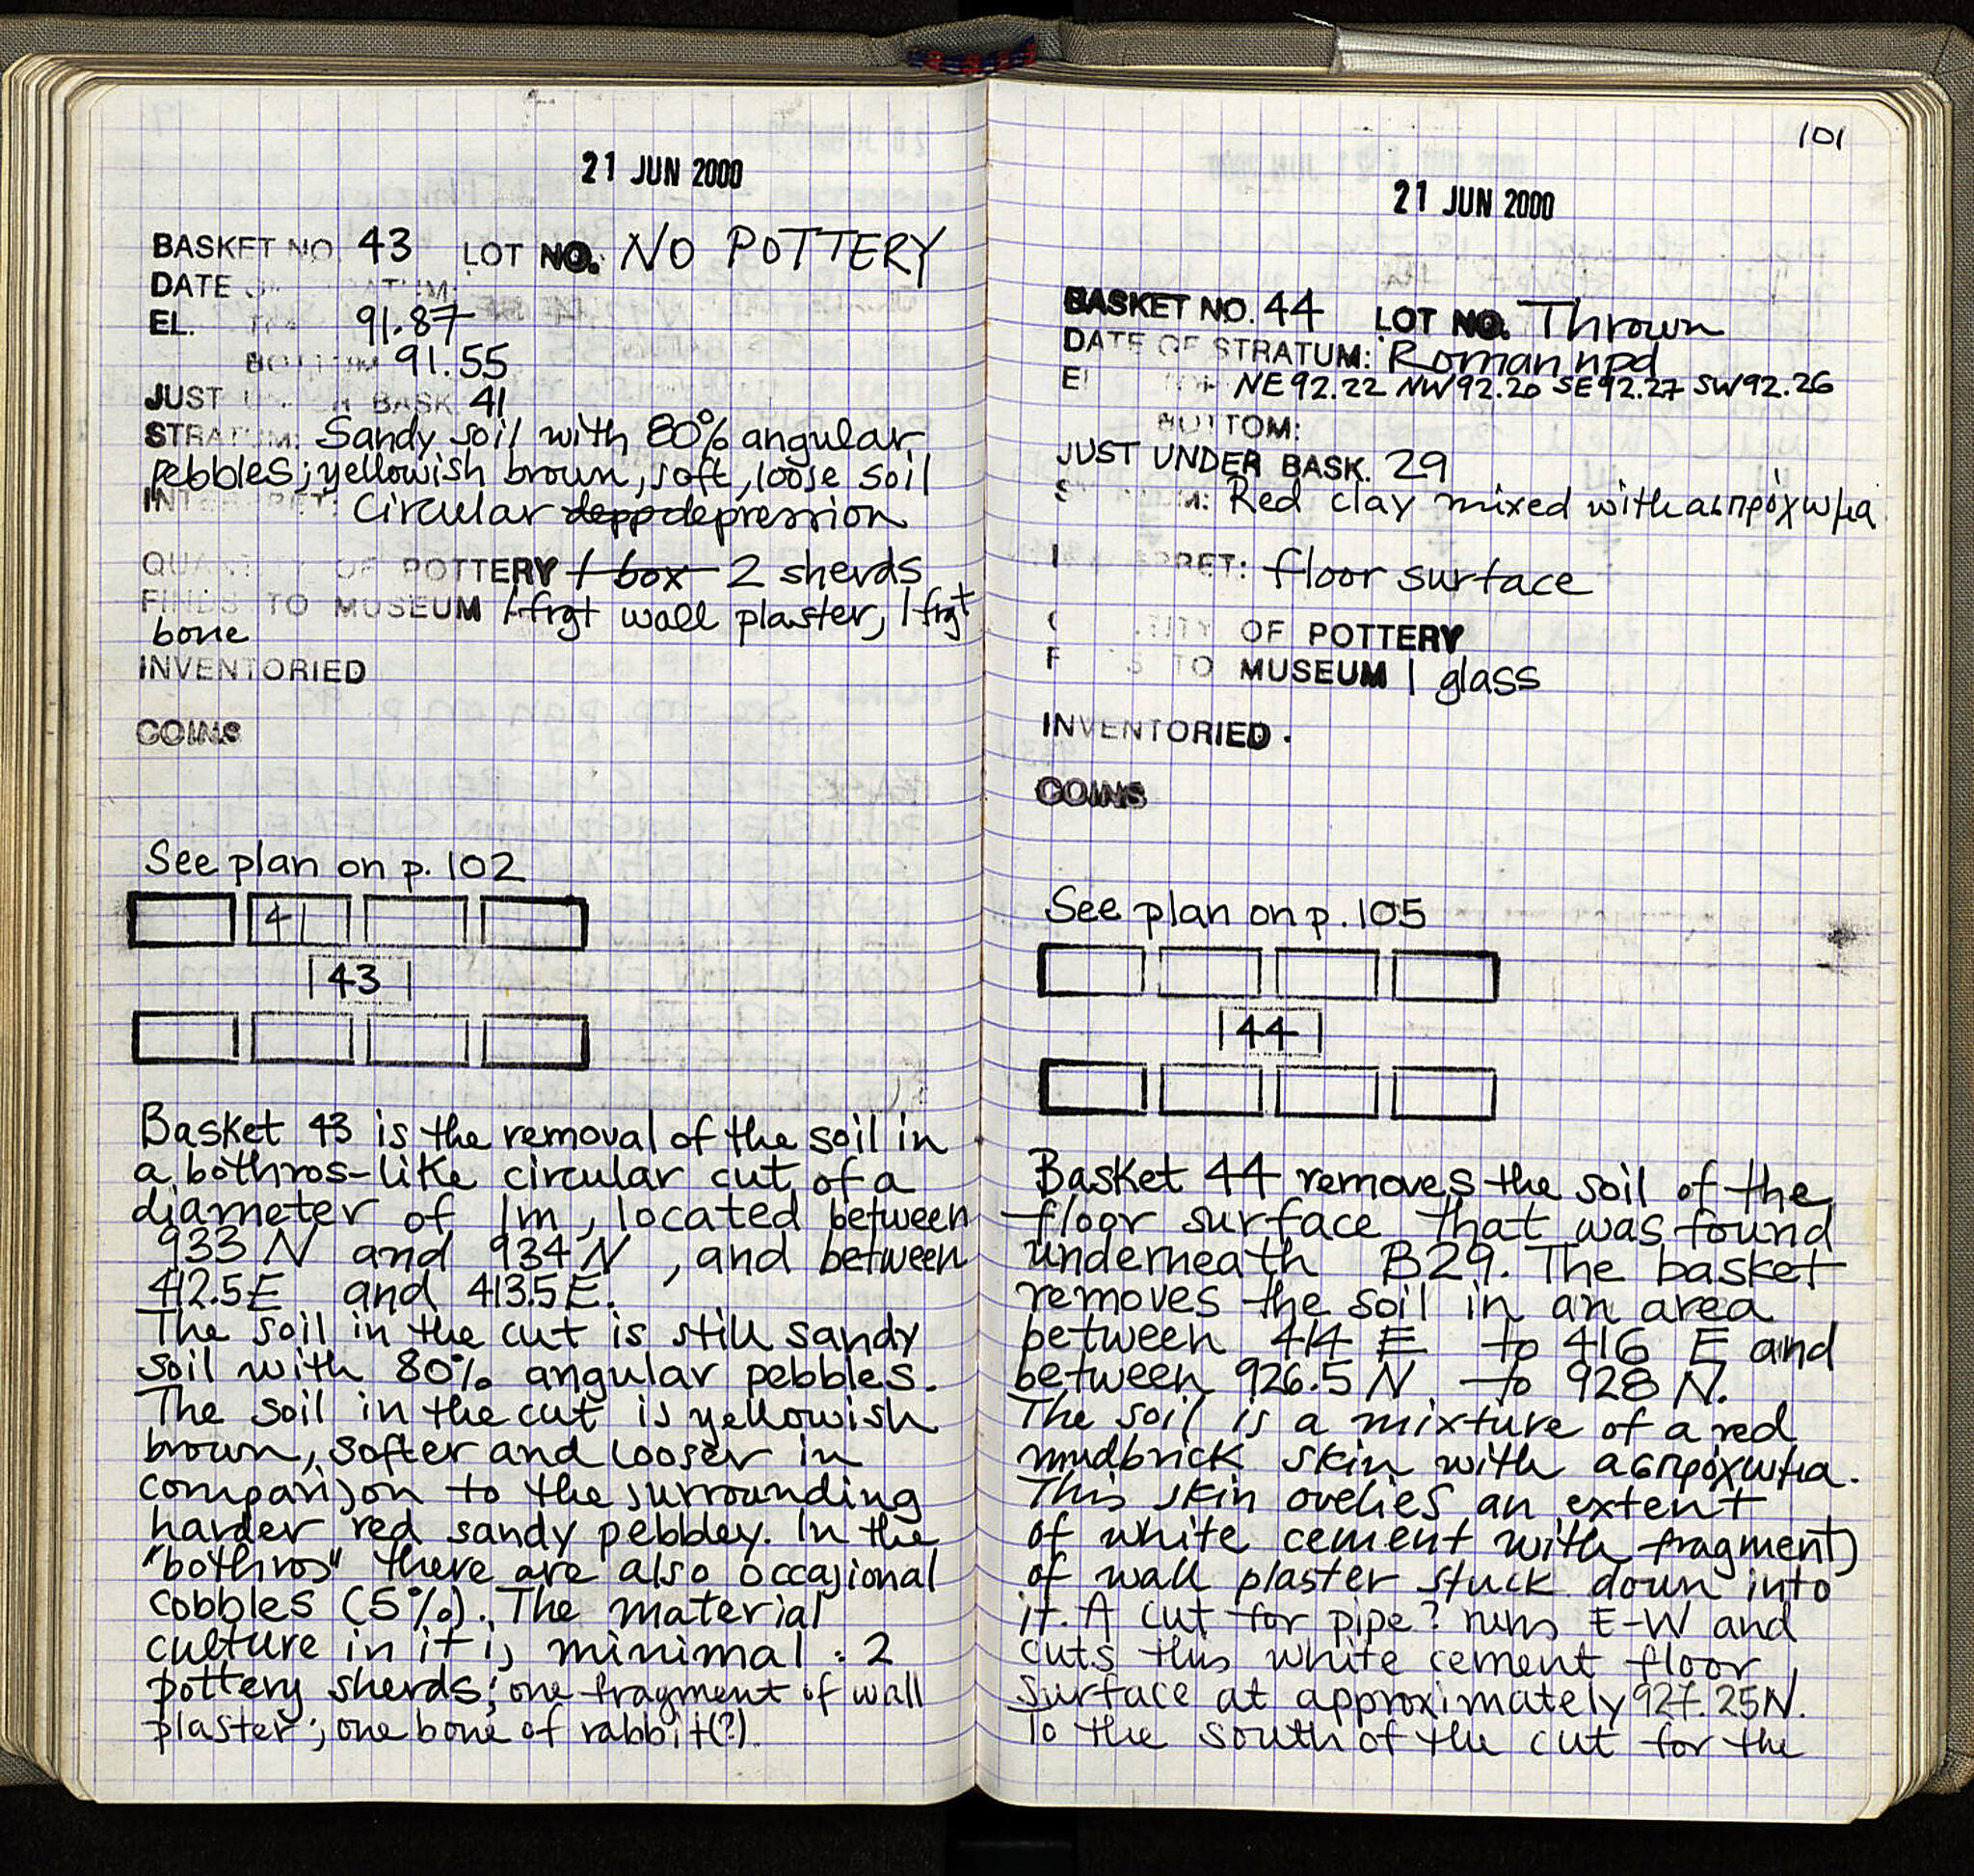 21 JUN 2000
BASKET NO. 43 LOT NO. NO POTTERY
DATE OF STRATUM:
EL. TOP 91.87
BOTTOM 91.55
JUST UNDER BASK. 41
STRATUM: Sandy soil with 80% angular
pebbles; yellowish brown, soft, loose soil
INTERPRET: Circular depp depression
QUANTITY OF POTTERY 1 box 2 sherds
FINDS TO MUSEUM 1 frgt wall plaster, 1 frgt
bone
INVENTORIED
COINS
See plan on p. 102
41
43
Basket 43 is the removal of the soil in
a bothros-like circular cut of a
diameter of 1m, located between
933 N and 934 N, and between
412.5E and 413.5E.
The soil in the cut is still sandy
soil with 80% angular pebbles.
The soil in the cut is yellowish
brown, softer and looser in
comparison to the surrounding
harder red sandy pebbley. In the
"bothros" there are also occasional
cobbles (5%). The material
culture in it is minimal : 2
pottery sherds; one fragment of wall
plaster; one bone of rabbit(?).
101
21 JUN 2000
BASKET NO. 44 LOT NO. Thrown
DATE OF STRATUM: Roman npd
EL. TOP NE 92.22 NW 92.20 SE 92.27 SW 92.26
BOTTOM:
JUST UNDER BASK. 29
STRATUM: Red clay mixed with ασπρόχωμα
INTERPRET: floor surface
QUANTITY OF POTTERY
FINDS TO MUSEUM 1 glass
INVENTORIED .
COINS
See plan on p. 105
44
Basket 44 removes the soil of the
floor surface that was found
underneath B29. The basket
removes the soil in an area
between 414 E to 416 E and
between 926.5 N to 928 N.
The soil is a mixture of a red
mudbrick skin with ασπρόχωμα.
This skin ovelies an extent
of white cement with fragments
of wall plaster stuck down into
it. A cut for pipe? runs E-W and
cuts this white cement floor
surface at approximately 927.25N.
To the south of the cut for the